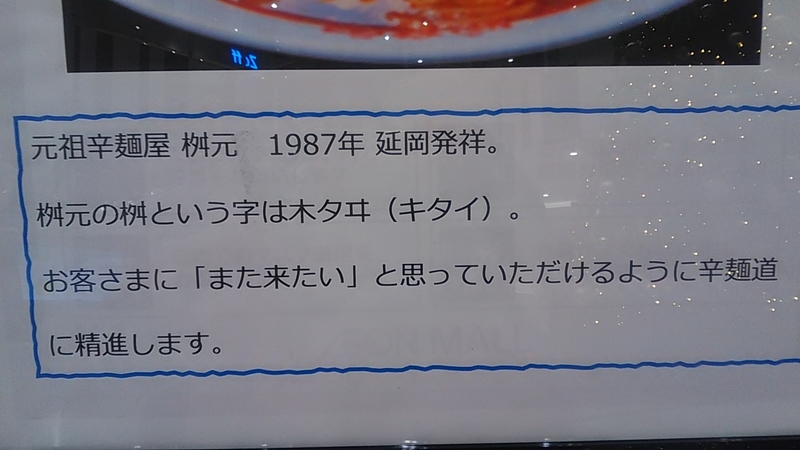 元祖辛麺屋 桝元　1987年 延岡発祥。
桝元の桝という字は木タヰ（キタイ）。
お客さまに「また来たい」と思っていただけるように辛麺道
に精進します。